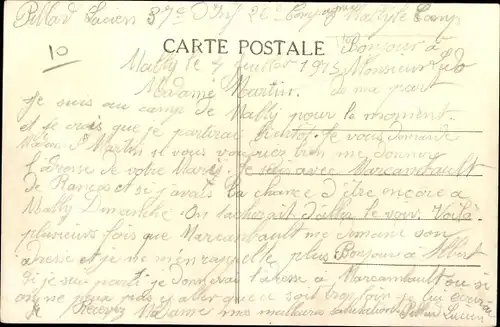 Pillard Lucien 37e D Inf 26e Compagnie Mailly le Camp
10
CARTE POSTALE
Bonjour à
Mailly le 4 Juillet 1915
Monsieur Ludo
Madame Martin.
de ma part
Je suis au camp de Mailly pour le moment.
et je crois que je partirai bientôt. Je vous demande
Madame Martin si vous vouriez bien me donner
l'adresse de votre Mari. Je suis avec Marcambault
de Rançes et si j'avais la chance d'être encore a
Mailly Dimanche. On tacherait d'aller le voir. Voilà
plusieurs fois que Marcambault me demande son
adresse et je ne m'en rappelle plus Bonjour à Albert
Si je suis parti je donnerai l'adresse à Marcambault ou si
on ne peux pas y aller que ce soit trop loin je lui écrirai
Je Recevez Madame mes meilleures salutations Pillard Lucien